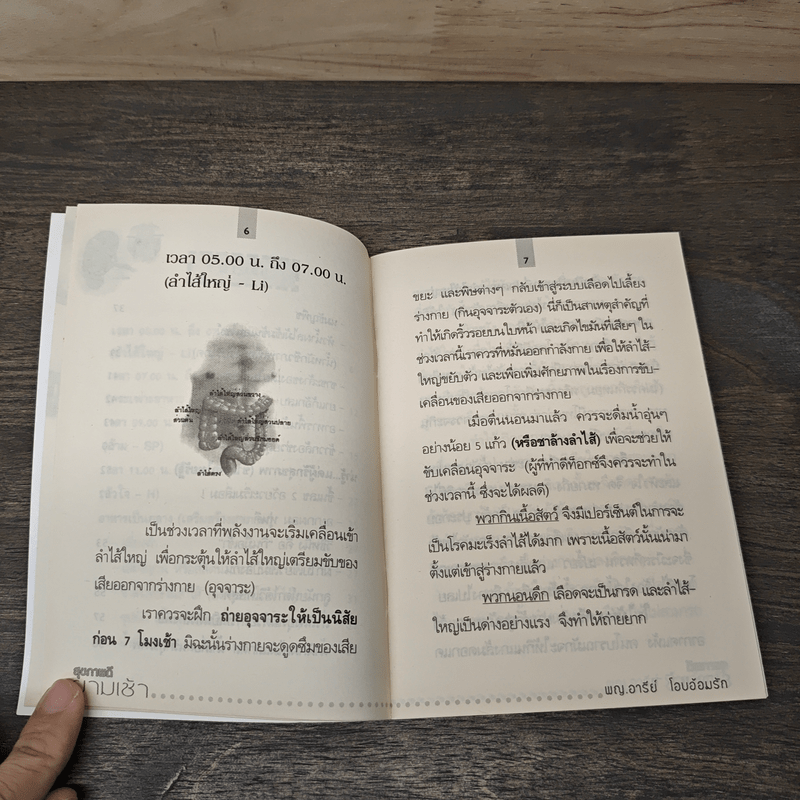 6
เวลา 05.00 น. ถึง 07.00 น.
(ลำไส้ใหญ่ - Li)
ลำไส้ใหญ่ส่วนขวาง
ลำไส้ใหญ่
ส่วนต้น
ลำไส้ใหญ่ส่วนปลาย
ลำไส้ตรง
เป็นช่วงเวลาที่พลังงานจะเริ่มเคลื่อนเข้า
ลำไส้ใหญ่ เพื่อกระตุ้นให้ลำไส้ใหญ่เตรียมขับของ
เสียออกจากร่างกาย (อุจจาระ)
เราควรจะฝึก ถ่ายอุจจาระให้เป็นนิสัย
ก่อน 7 โมงเช้า มิฉะนั้นร่างกายจะดูดซึมของเสีย
สุขภาพดี
ยามเช้า
7
ขยะ และพิษต่างๆ กลับเข้าสู่ระบบเลือดไปเลี้ยง
ร่างกาย (กินอุจจาระตัวเอง) นี่ก็เป็นสาเหตุสำคัญที่
ทำให้เกิดริ้วรอยบนใบหน้า และเกิดไขมันที่เสียๆ ใน
ช่วงเวลานี้เราควรที่หมั่นออกกำลังกาย เพื่อให้ลำไส้-
ใหญ่ขยับตัว และเพื่อเพิ่มศักยภาพในเรื่องการขับ-
เคลื่อนของเสียออกจากร่างกาย
เมื่อตื่นนอนมาแล้ว ควรจะดื่มน้ำอุ่นๆ
อย่างน้อย 5 แก้ว (หรือชาล้างลำไส้) เพื่อจะช่วยให้
ขับเคลื่อนอุจจาระ (ผู้ที่ทำดีท็อกซ์จึงควรจะทำใน
ช่วงเวลานี้ ซึ่งจะได้ผลดี)
พวกกินเนื้อสัตว์ จึงมีเปอร์เซ็นต์ในการจะ
เป็นโรคมะเร็งลำไส้ได้มาก เพราะเนื้อสัตว์นั้นเน่ามา
ตั้งแต่เข้าสู่ร่างกายแล้ว
พวกนอนดึก เลือดจะเป็นกรด และลำไส้-
ใหญ่เป็นด่างอย่างแรง จึงทำให้ถ่ายยาก
พญ.อารีย์ โอบอ้อมรัก